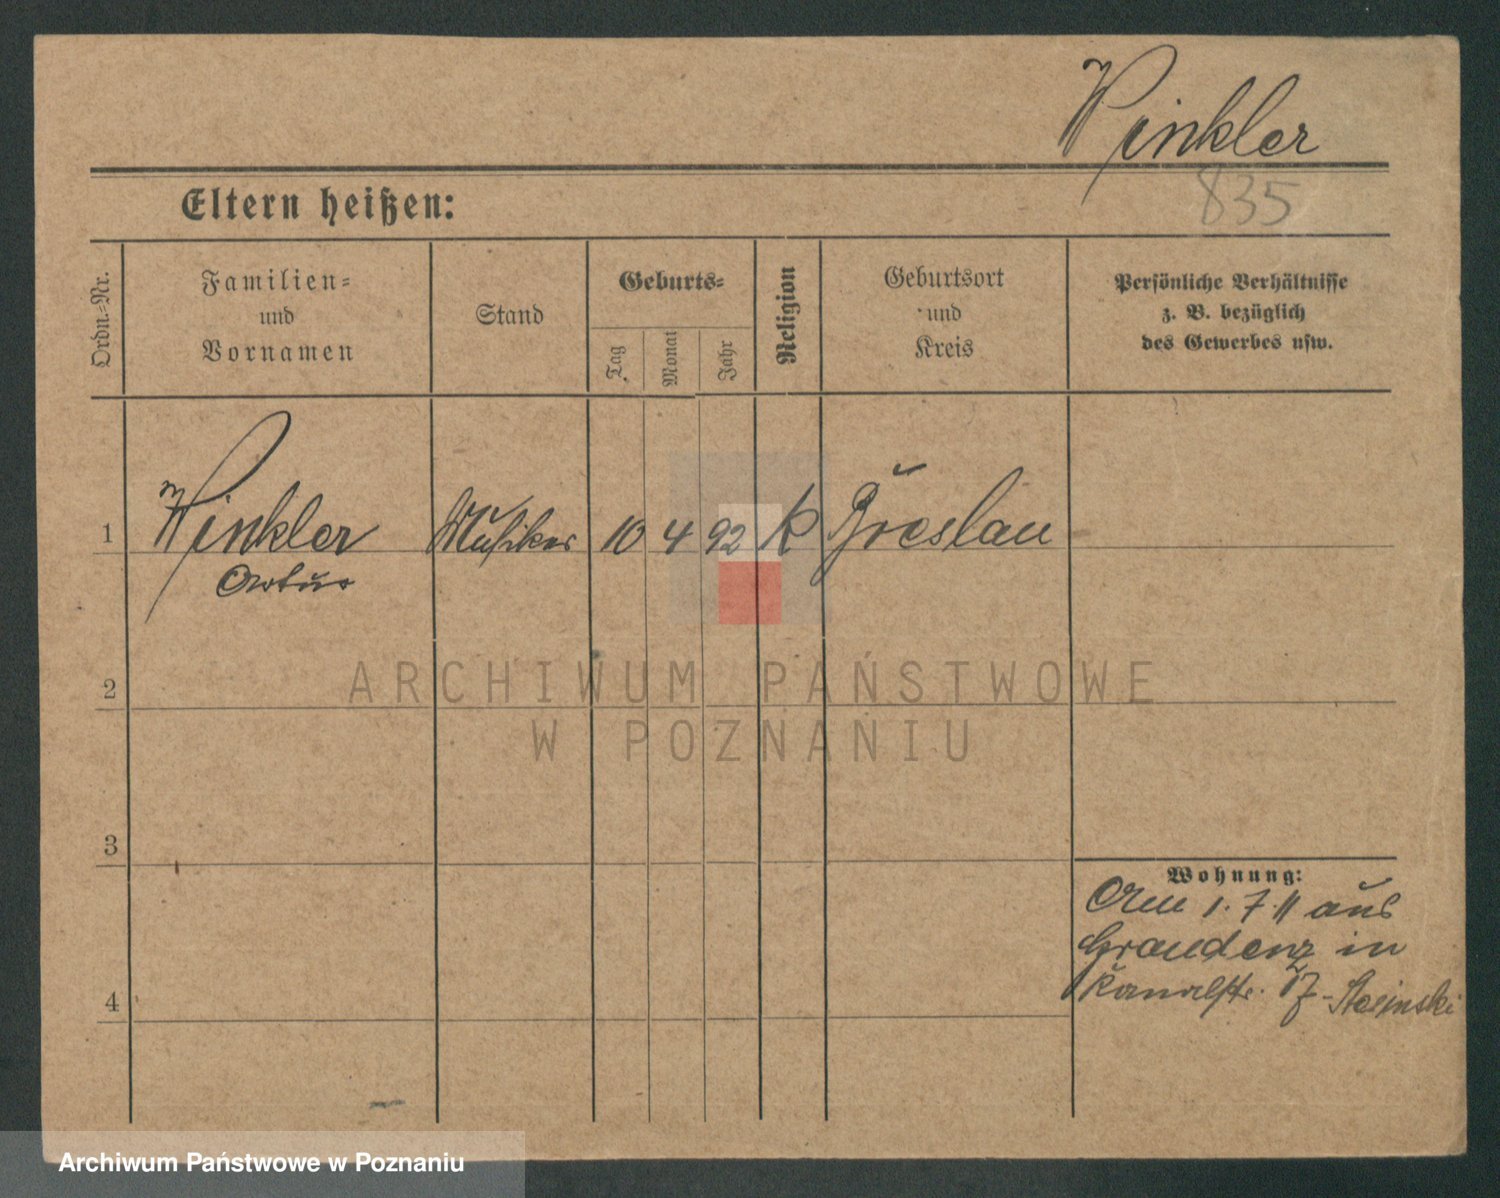 Winkler
835
Eltern heißen:
Ordn.-Nr.
Familien-
und
Vornamen
Stand
Geburts-
Tag
Monat
Jahr
Religion
Geburtsort
und
Kreis
Persönliche Verhältnisse
z. B. bezüglich
des Gewerbes usw.
1 Winkler Musiker 10 4 92 K Breslau
Artur
2
ARCHIWUM PAŃSTWOWE
W POZNANIU
3
Wohnung:
Am 1.7.11 aus
Graudenz in
4
Kanalstr. 17
Archiwum Państwowe w Poznaniu